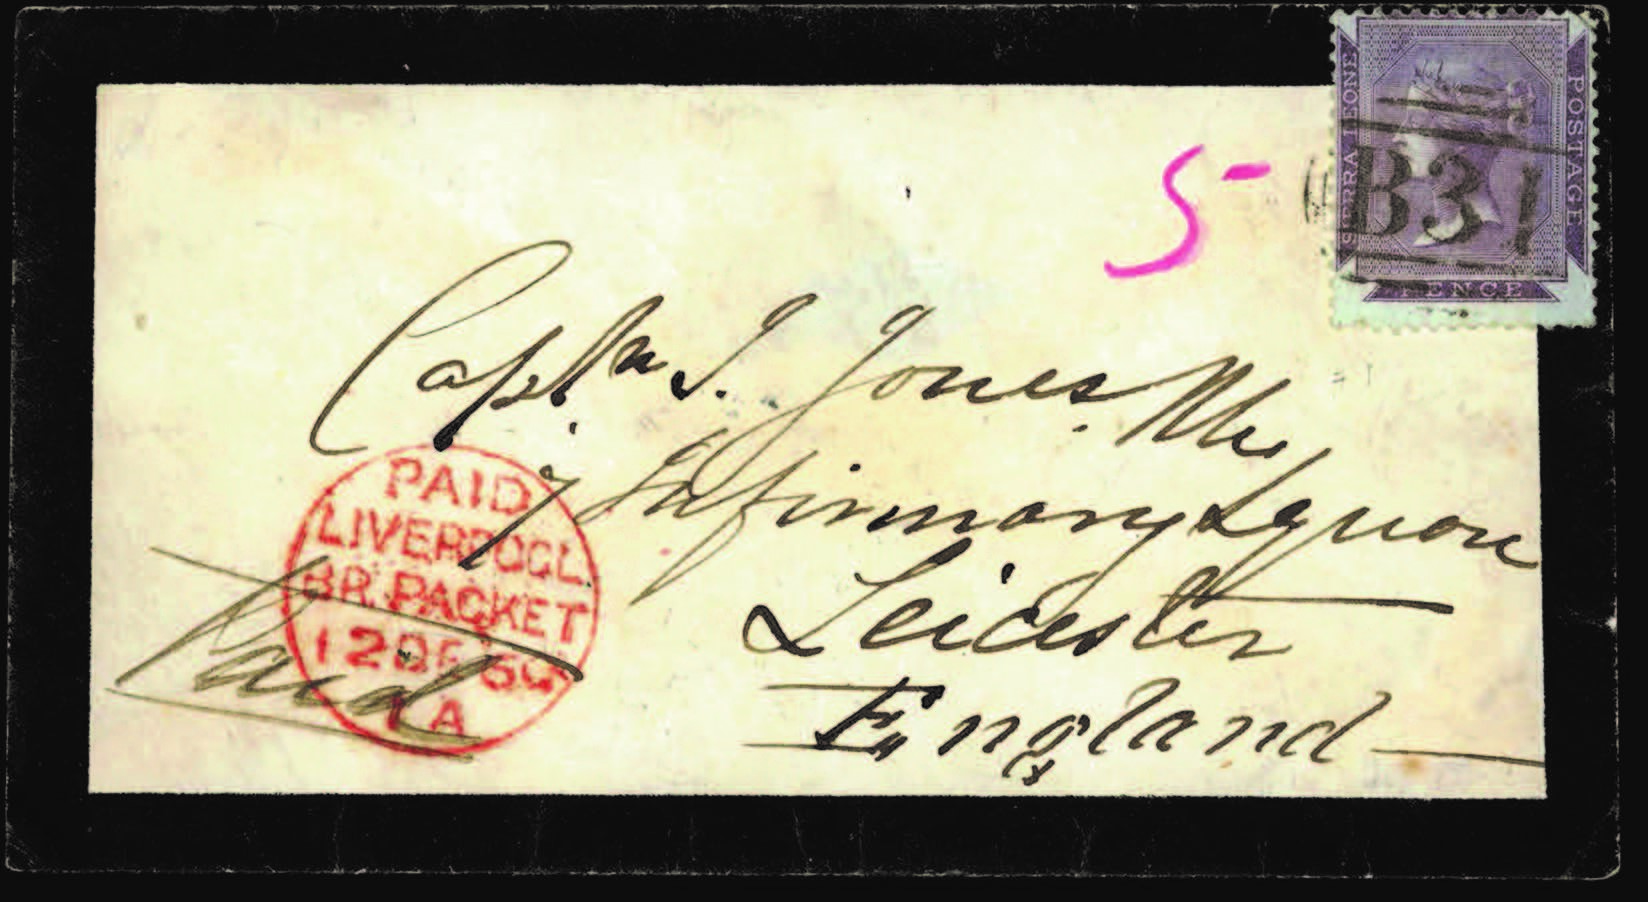 SIERRA LEONE
POSTAGE
PENCE
B31
5-
Captn J. Jones
7 Infirmary Square
Leicester
England
Paid
PAID
LIVERPOOL
BR. PACKET
12 DE
1A